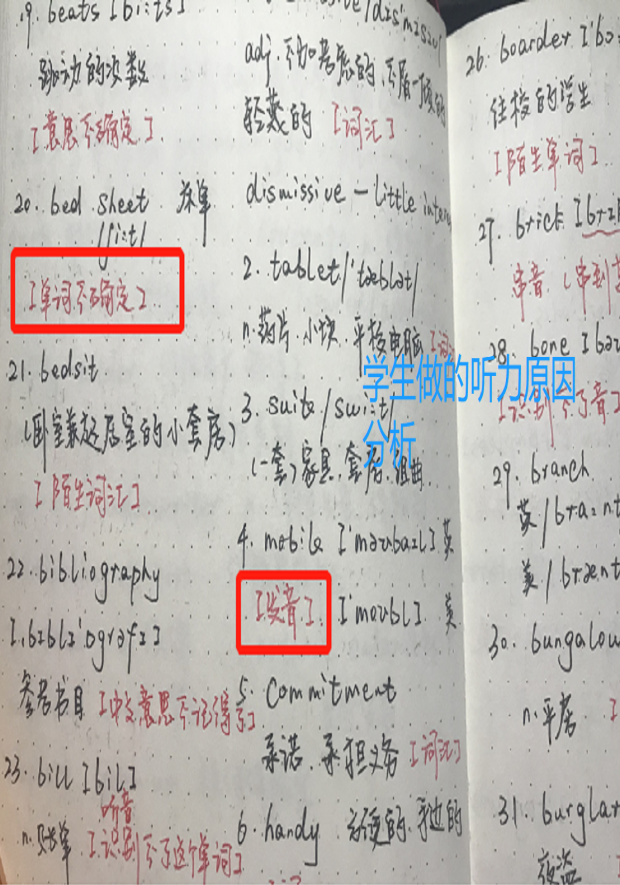 19. beats [bi:ts]
跳动的次数
[意思不确定]
20. bed sheet 床单
/ʃi:t/
[单词不确定]
21. bedsit
(卧室兼起居室的小套房)
[陌生词汇]
22. bibliography
[,bɪblɪ'ɒgrəfɪ]
参考书目 [中文意思不记得了]
23. bill [bɪl]
听音
n. 账单 [识别不了这个单词]
/dɪs'mɪsɪv/
adj. 不加考虑的 不屑一顾的
轻蔑的 [词汇]
dismissive — little
2. tablet /'tæblət/
n. 药片 小块 平板电脑
学生做的听力原因
分析
3. suite /swi:t/
(一套)家具, 套房, 组曲
4. mobile ['məʊbaɪl] 英
[发音] ['məʊbl] 美
5. commitment
承诺, 承担义务 [词汇]
6. handy 方便的, 手边的
26. boarder
住校的学生
[陌生单词]
27. brick
串音
28. bone
[识别不了音]
29. branch
英 /bra:nt
美 /brænt
30. bungalow
n. 平房
31. burglar
夜盗